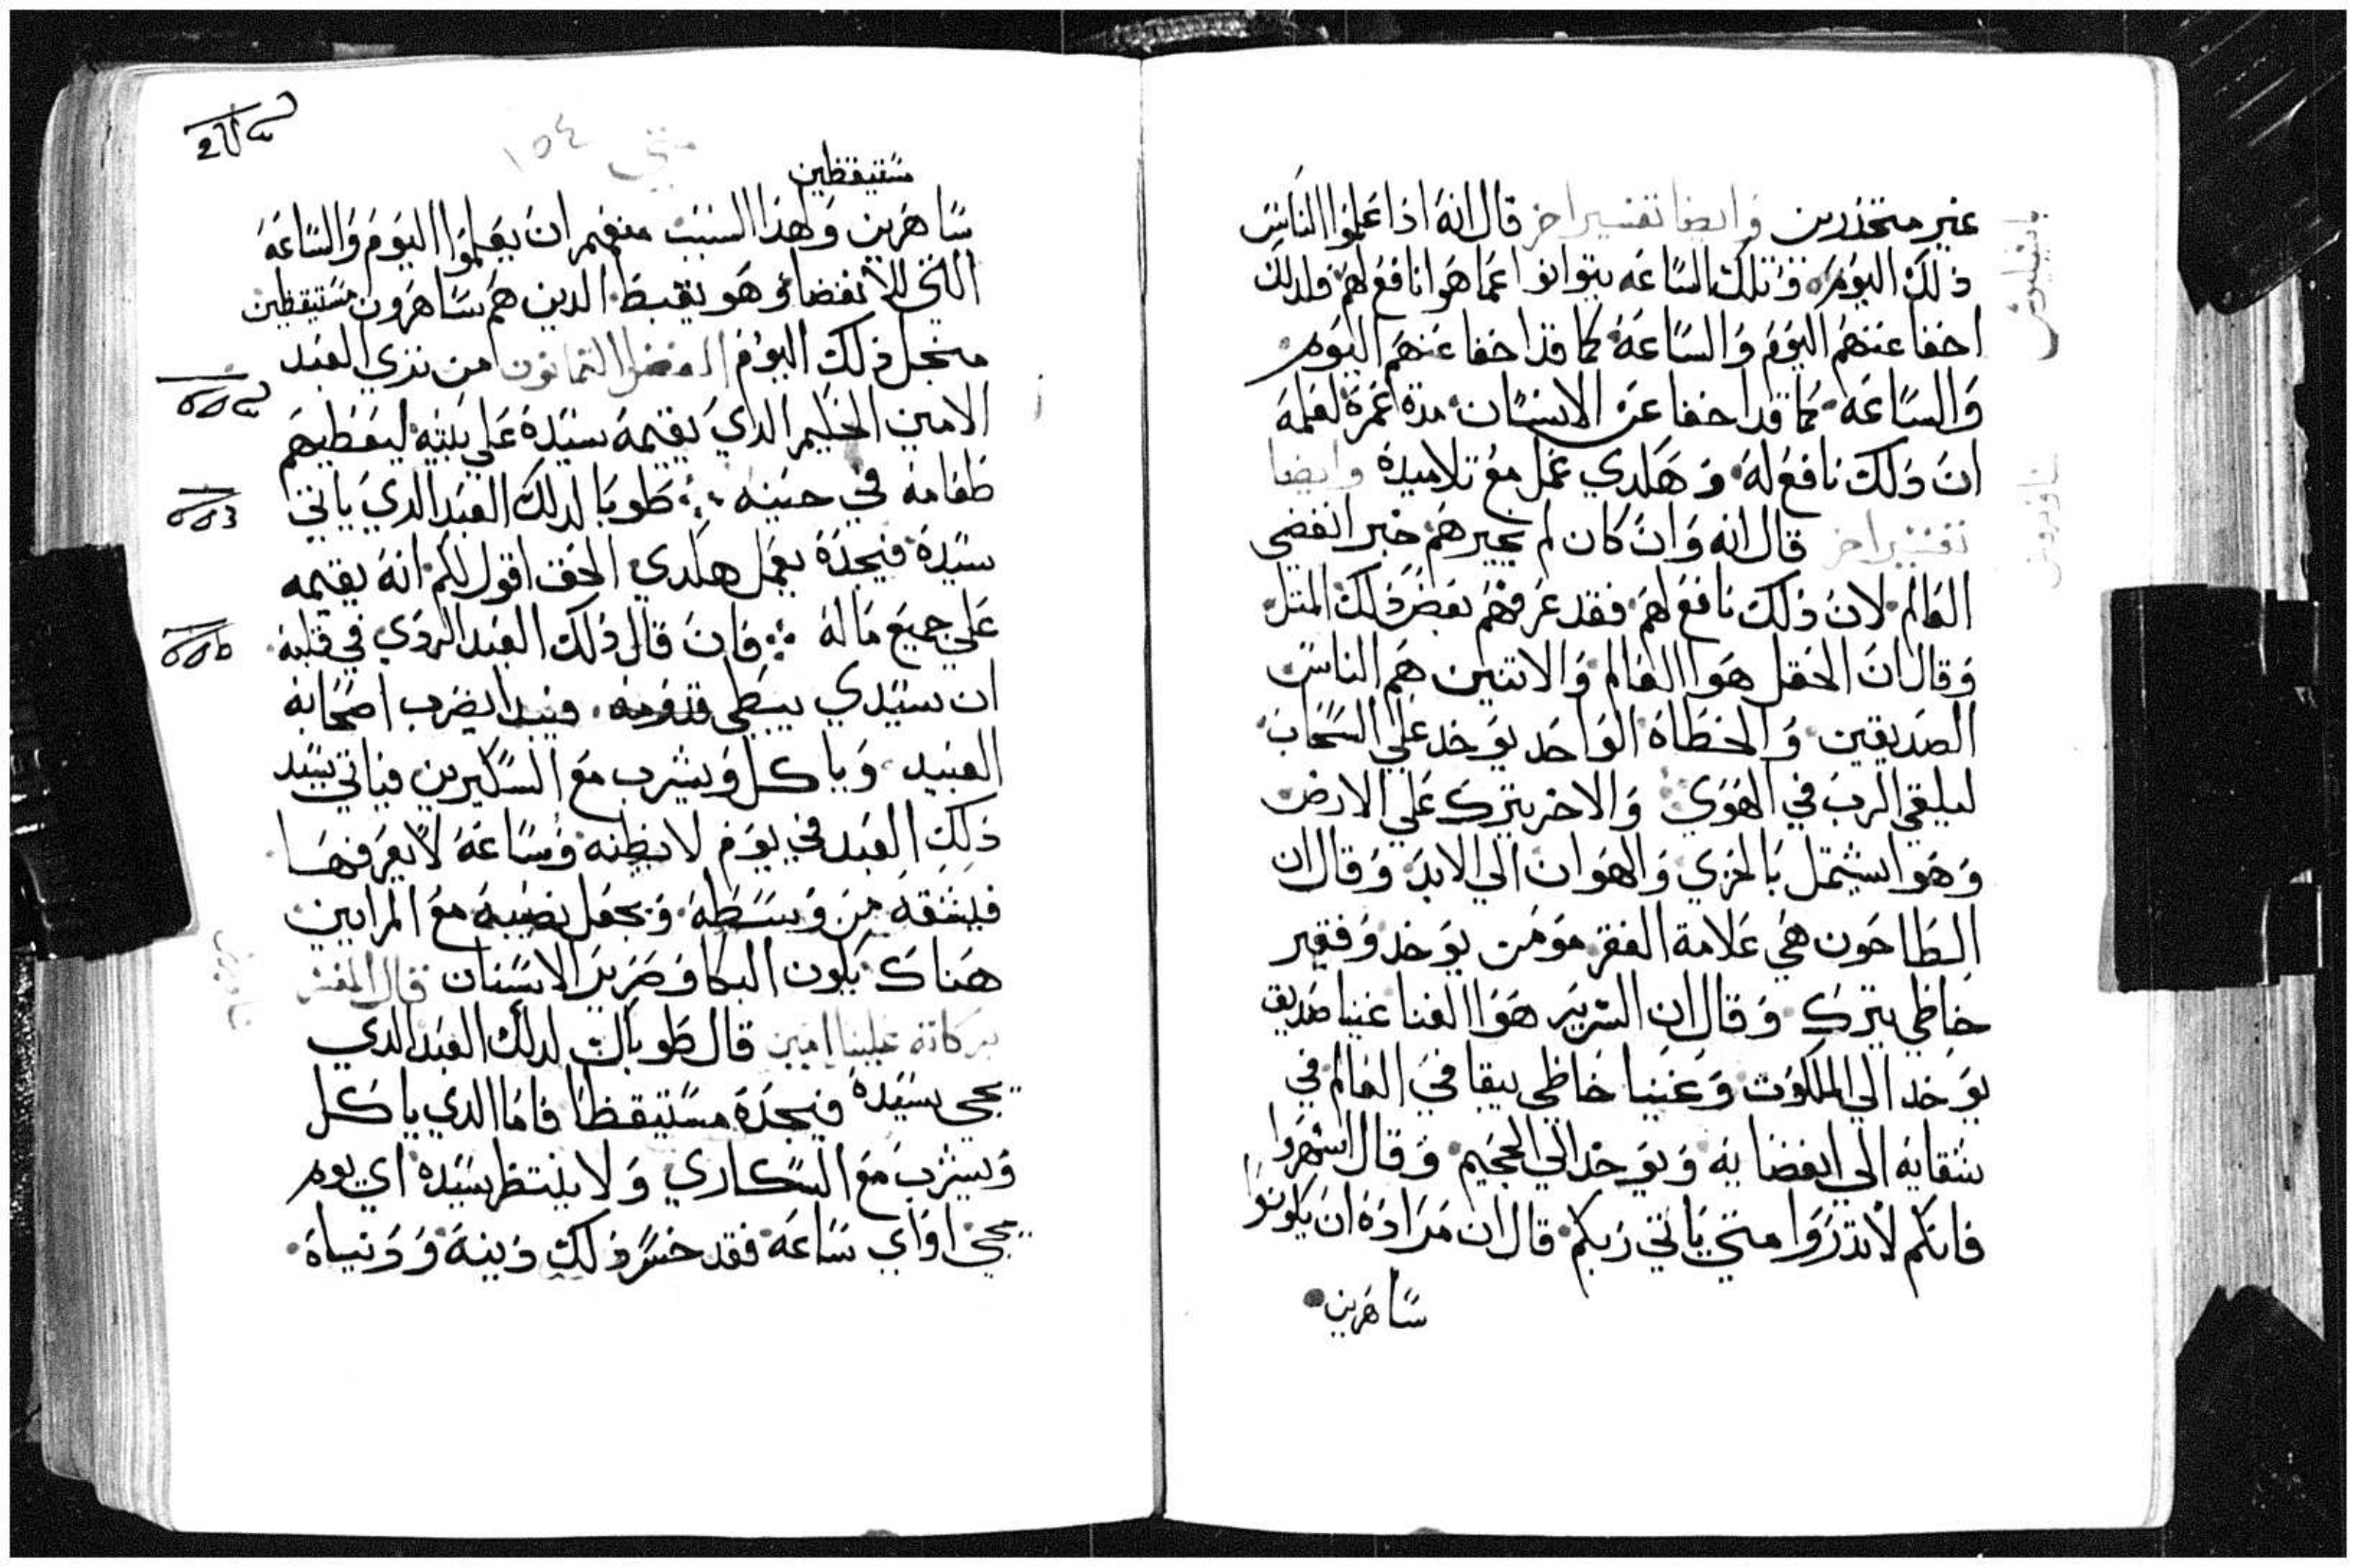 غير متحذرين وايضا تفسير اخر قال انه اذا علموا الناس
ذلك اليوم وتلك الساعه يتوانوا عما هوا نافع لهم فلدلك
اخفا عنهم اليوم والساعة كما قد اخفا عنهم اليوم
والساعة كما قد اخفا عن الانسان مدة عمره لعلمه
ان ذلك نافع له وهكدي عمل مع تلاميده وايضا
تفسير اخر قال انه وان كان لم يخبرهم خبر انقضي
العالم لان ذلك نافع لهم فقد عرفهم بعض ذلك المثل
وقال ان الحقل هوا العالم والاتنين هم الناس
الصديقين والخطاه الواحد يوخد علي السحاب
ليلقي الرب في الهوي والاخر يترك علي الارض
وهوا يشتمل بالخزي والهوان الي الابد وقال ان
الطاحون هي علامة الفقر مومن يوخد وفقير
خاطي يترك وقال ان السرير هوا الغنا غنيا صديق
يوخد الي الملكوت وغنيا خاطي يبقا في العالم في
شقايه الي انقضايه ويوخد الي الجحيم وقال اسهروا
فانكم لا تدروا متي ياتي ربكم قال ان مراده ان يكونوا
ساهرين
متي ١٥٤
مستيقظين
ساهرين ولهذا السبب منعهم ان يعلموا اليوم والساعة
التي للانقضا وهو يغبط الدين هم ساهرون مستيقظين
من جل ذلك اليوم الفصل التمانون من تري العبد
الامين الحكيم الدي يقيمه سيده علي بيته ليعطيهم
طعامه في حينه طوبا لدلك العبد الدي ياتي
سيده فيجده يعمل هكدي الحق اقول لكم انه يقيمه
علي جميع ماله فان قال ذلك العبد الردي في قلبه
ان سيدي يبطي قدومه فيبدا يضرب اصحابه
العبيد وياكل ويشرب مع السكيرين فياتي سيد
ذلك العبد في يوم لا يظنه وساعة لا يعرفها
فيشقه من وسطه ويجعل نصيبه مع المرايين
هناك يكون البكا وصرير الاسنان قال المفسر
بركاته علينا امين قال طوباك لدلك العبد الدي
يجي سيده فيجده مستيقظا فاما الدي ياكل
ويشرب مع السكاري ولا ينتظر سيده اي يوم
يجي اواي ساعة فقد خسر ذلك دينه ودنياه